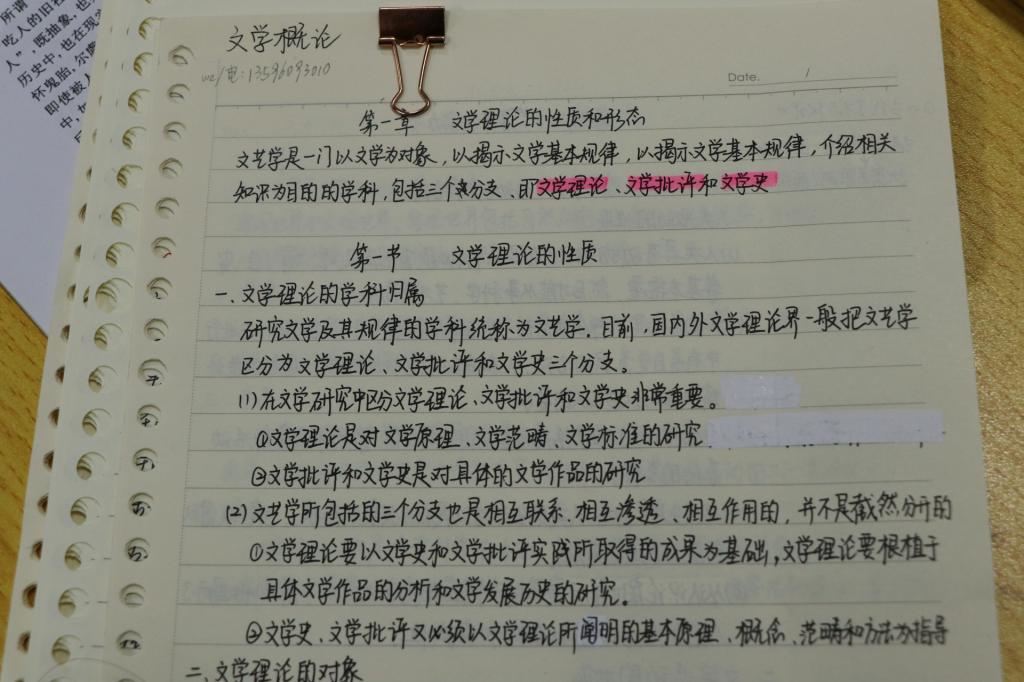 所谓
吃人的旧社
人”，既抽象，也
历史中，也在现实
怀鬼胎，尔虞
即使被人
文学概论
wx/电:13596093010
Date. 1
第一章 文学理论的性质和形态
文艺学是一门以文学为对象，以揭示文学基本规律，以揭示文学基本规律，介绍相关
知识为目的的学科，包括三个分支、即文学理论、文学批评和文学史
第一节 文学理论的性质
一.文学理论的学科归属
研究文学及其规律的学科统称为文艺学。目前，国内外文学理论界一般把文艺学
区分为文学理论、文学批评和文学史三个分支。
(1)在文学研究中区分文学理论、文学批评和文学史非常重要。
①文学理论是对文学原理、文学范畴、文学标准的研究
②文学批评和文学史是对具体的文学作品的研究
(2)文艺学所包括的三个分支也是相互联系.相互渗透、相互作用的，并不是截然分开的
①文学理论要以文学史和文学批评实践所取得的成果为基础，文学理论要根植于
具体文学作品的分析和文学发展历史的研究。
②文学史、文学批评又必须以文学理论所阐明的基本原理、概念、范畴和方法为指导
二.文学理论的对象